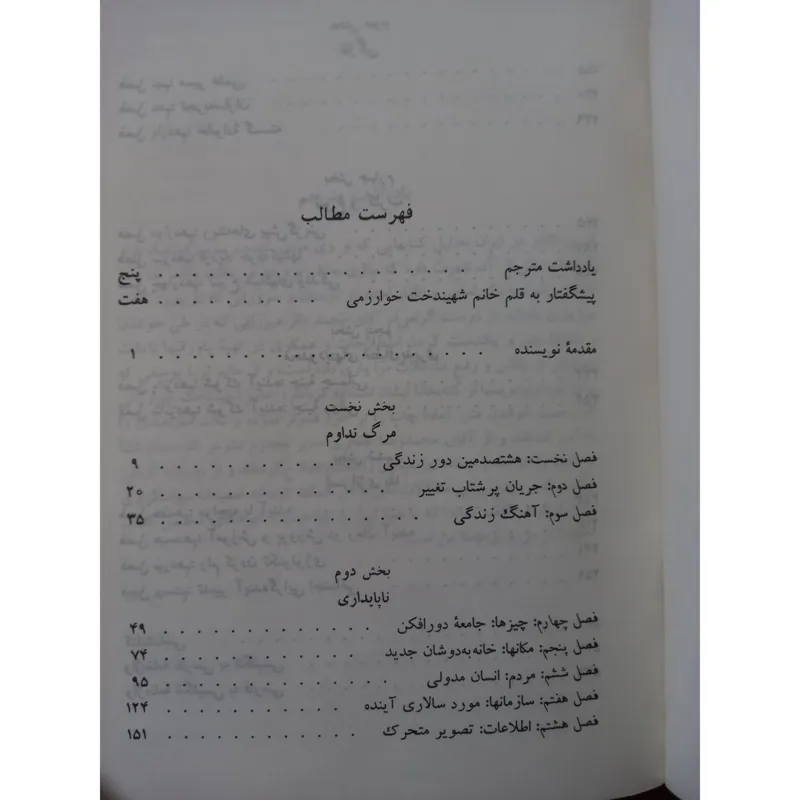 فهرست مطالب
یادداشت مترجم . . . . . . . . . . . . . . . . . . پنج
پیشگفتار به قلم خانم شهیندخت خوارزمی . . . . . . . . . . هفت
مقدمهٔ نویسنده . . . . . . . . . . . . . . . . . . . ۱
بخش نخست
مرگ تداوم
فصل نخست: هشتصدمین دور زندگی . . . . . . . . . . . ۹
فصل دوم: جریان پرشتاب تغییر . . . . . . . . . . . . . ۲۰
فصل سوم: آهنگ زندگی . . . . . . . . . . . . . . . ۳۵
بخش دوم
ناپایداری
فصل چهارم: چیزها: جامعهٔ دورافکن . . . . . . . . . . . ۴۹
فصل پنجم: مکانها: خانه‌به‌دوشان جدید . . . . . . . . . . ۷۴
فصل ششم: مردم: انسان مدولی . . . . . . . . . . . . . ۹۵
فصل هفتم: سازمانها: مورد سالاری آینده . . . . . . . . . . ۱۲۴
فصل هشتم: اطلاعات: تصویر متحرک . . . . . . . . . . . ۱۵۱